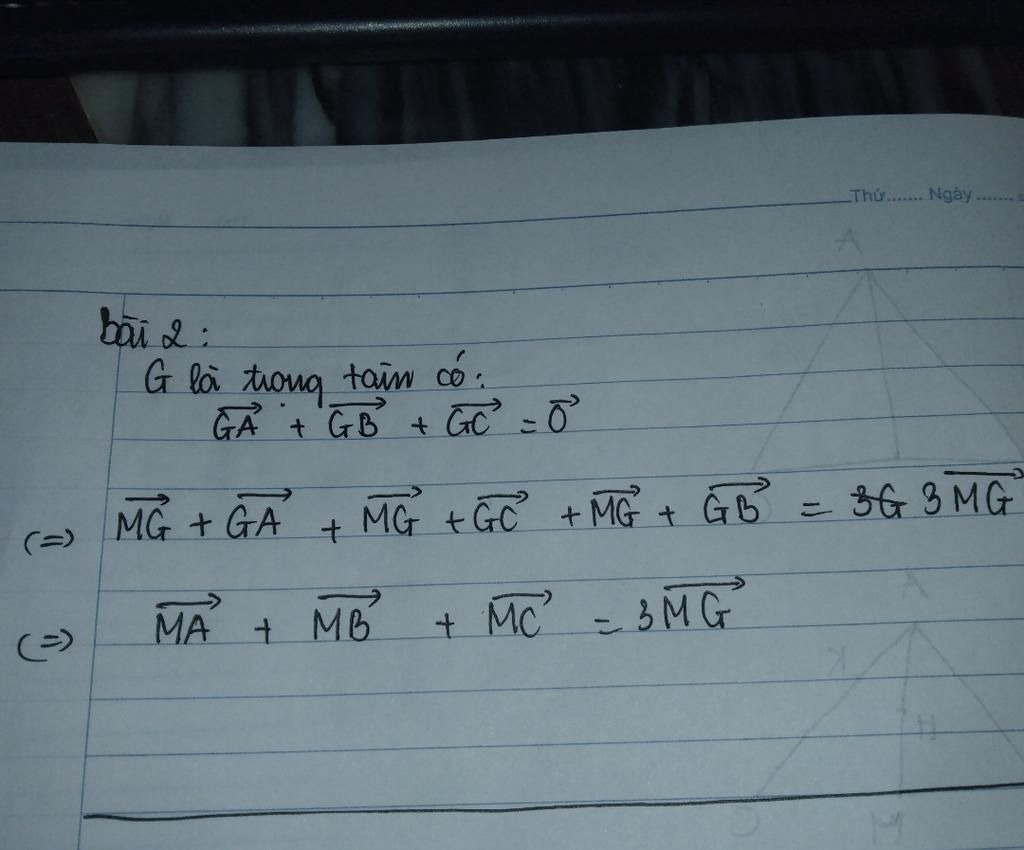 Thứ....... Ngày .......
A
bài 2 :
G là trong tâm có:
$\overrightarrow{GA} + \overrightarrow{GB} + \overrightarrow{GC} = \overrightarrow{0}$
(=) $\overrightarrow{MG} + \overrightarrow{GA} + \overrightarrow{MG} + \overrightarrow{GC} + \overrightarrow{MG} + \overrightarrow{GB} =$ ~~3G~~ $3\overrightarrow{MG}$
(=) $\overrightarrow{MA} + \overrightarrow{MB} + \overrightarrow{MC} = 3\overrightarrow{MG}$
A
K
H
C M